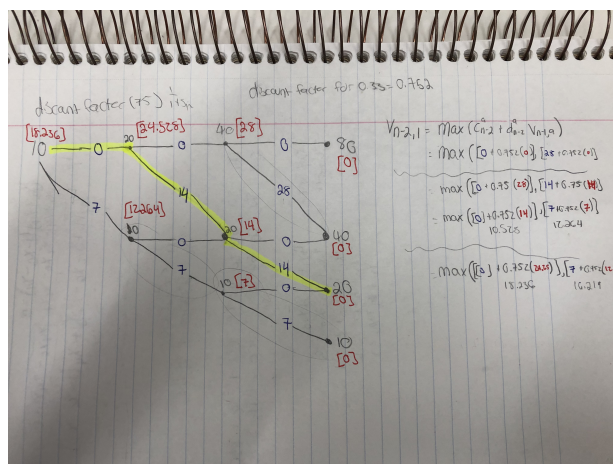 discant facter (75) 1/1+Sn
discant facter for 0.33 = 0.752
[18.236]
70
0
20
[24.528]
0
40 [28]
0
80
[0]
7
14
28
[12.264]
10
0
20
[14]
0
40
[0]
7
14
10
[7]
0
20
[0]
7
10
[0]
Vn-2,1 = max (Cn-2 + dn-2 Vn-1,a)
= max ([0 + 0.752(0)], [28 + 0.752(0)]
max ([0 + 0.75(28)], [14 + 0.75(14)]
= max ([0 + 0.752(14)], [7 + 0.752(7)]
10.528 12.264
= max ([0] + 0.752( )], [7 + 0.752(12
18.236 16.219